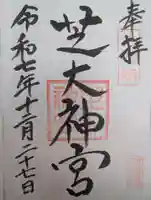 奉拝
芝大神宮
令和七年十二月二十七日